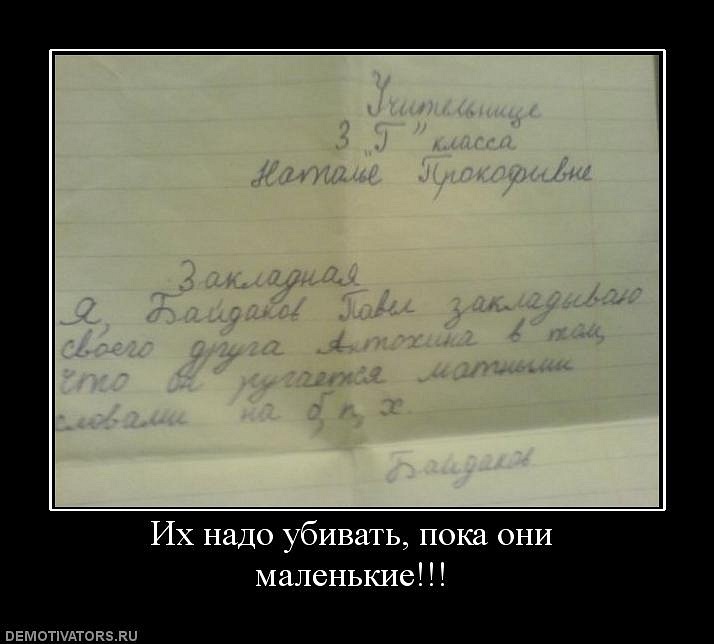 Учительнице
3 "Г" класса
Наталье Прокофывне
Закладная
Я, Байдаков Павел закладываю
своего друга Антохина в том,
что он ругается матными
словами на б, п, х.
Байдаков
Их надо убивать, пока они
маленькие!!!
DEMOTIVATORS.RU